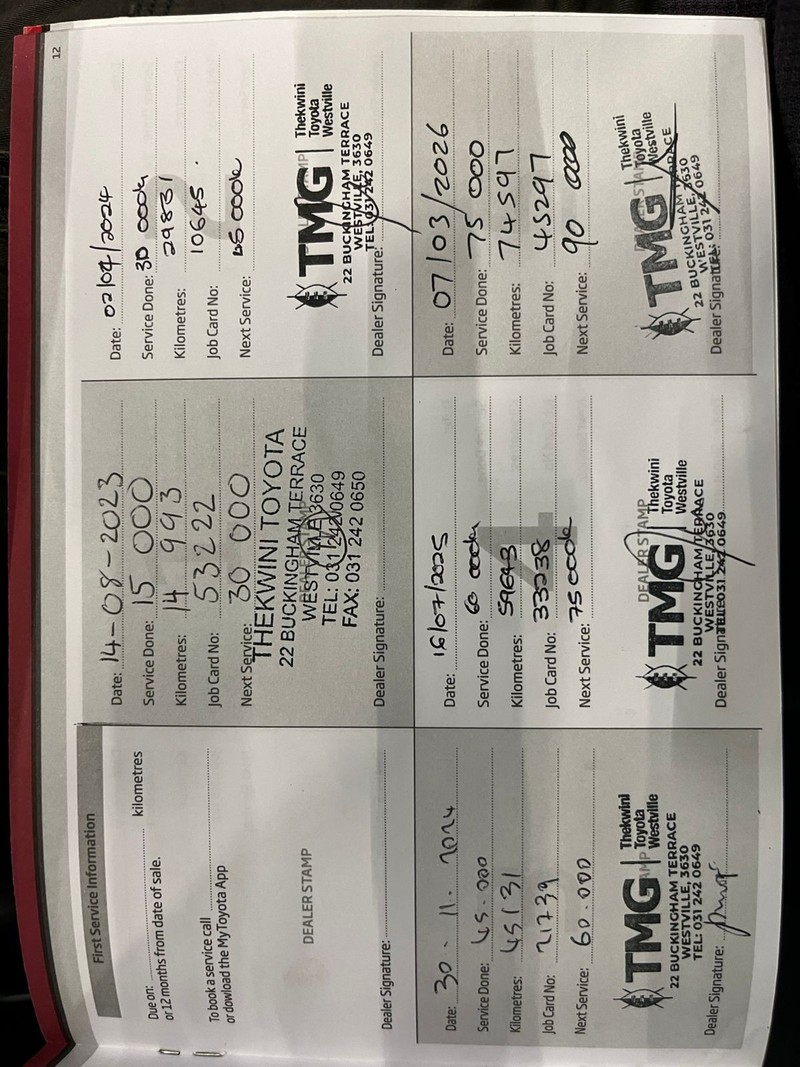 12
First Service Information
Due on: kilometres
or 12 months from date of sale.
To book a service call
or dowload the MyToyota App
DEALER STAMP
Dealer Signature:
Date: 14-08-2023
Service Done: 15 000
Kilometres: 14 993
Job Card No: 53222
Next Service: 30 000
THEKWINI TOYOTA
22 BUCKINGHAM TERRACE
WESTVILLE 3630
TEL: 031 242 0649
FAX: 031 242 0650
Dealer Signature:
Date: 02/04/2024
Service Done: 30 000k
Kilometres: 29831
Job Card No: 10645.
Next Service: 45 000k
TMG Thekwini
Toyota
Westville
22 BUCKINGHAM TERRACE
WESTVILLE, 3630
TEL: 031 242 0649
Dealer Signature:
Date: 30.11.2024
Service Done: 45.000
Kilometres: 45131
Job Card No: 21739
Next Service: 60.000
TMG Thekwini
Toyota
Westville
22 BUCKINGHAM TERRACE
WESTVILLE, 3630
TEL: 031 242 0649
Dealer Signature:
4
Date: 16/07/2025
Service Done: 60 000k
Kilometres: 59643
Job Card No: 33238
Next Service: 75 000k
DEALER STAMP
TMG Thekwini
Toyota
Westville
22 BUCKINGHAM TERRACE
WESTVILLE, 3630
TEL: 031 242 0649
Dealer Signature:
Date: 07/03/2026
Service Done: 75 000
Kilometres: 74597
Job Card No: 45297
Next Service: 90 000
TMG Thekwini
Toyota
Westville
22 BUCKINGHAM TERRACE
WESTVILLE, 3630
TEL: 031 242 0649
Dealer Signature: